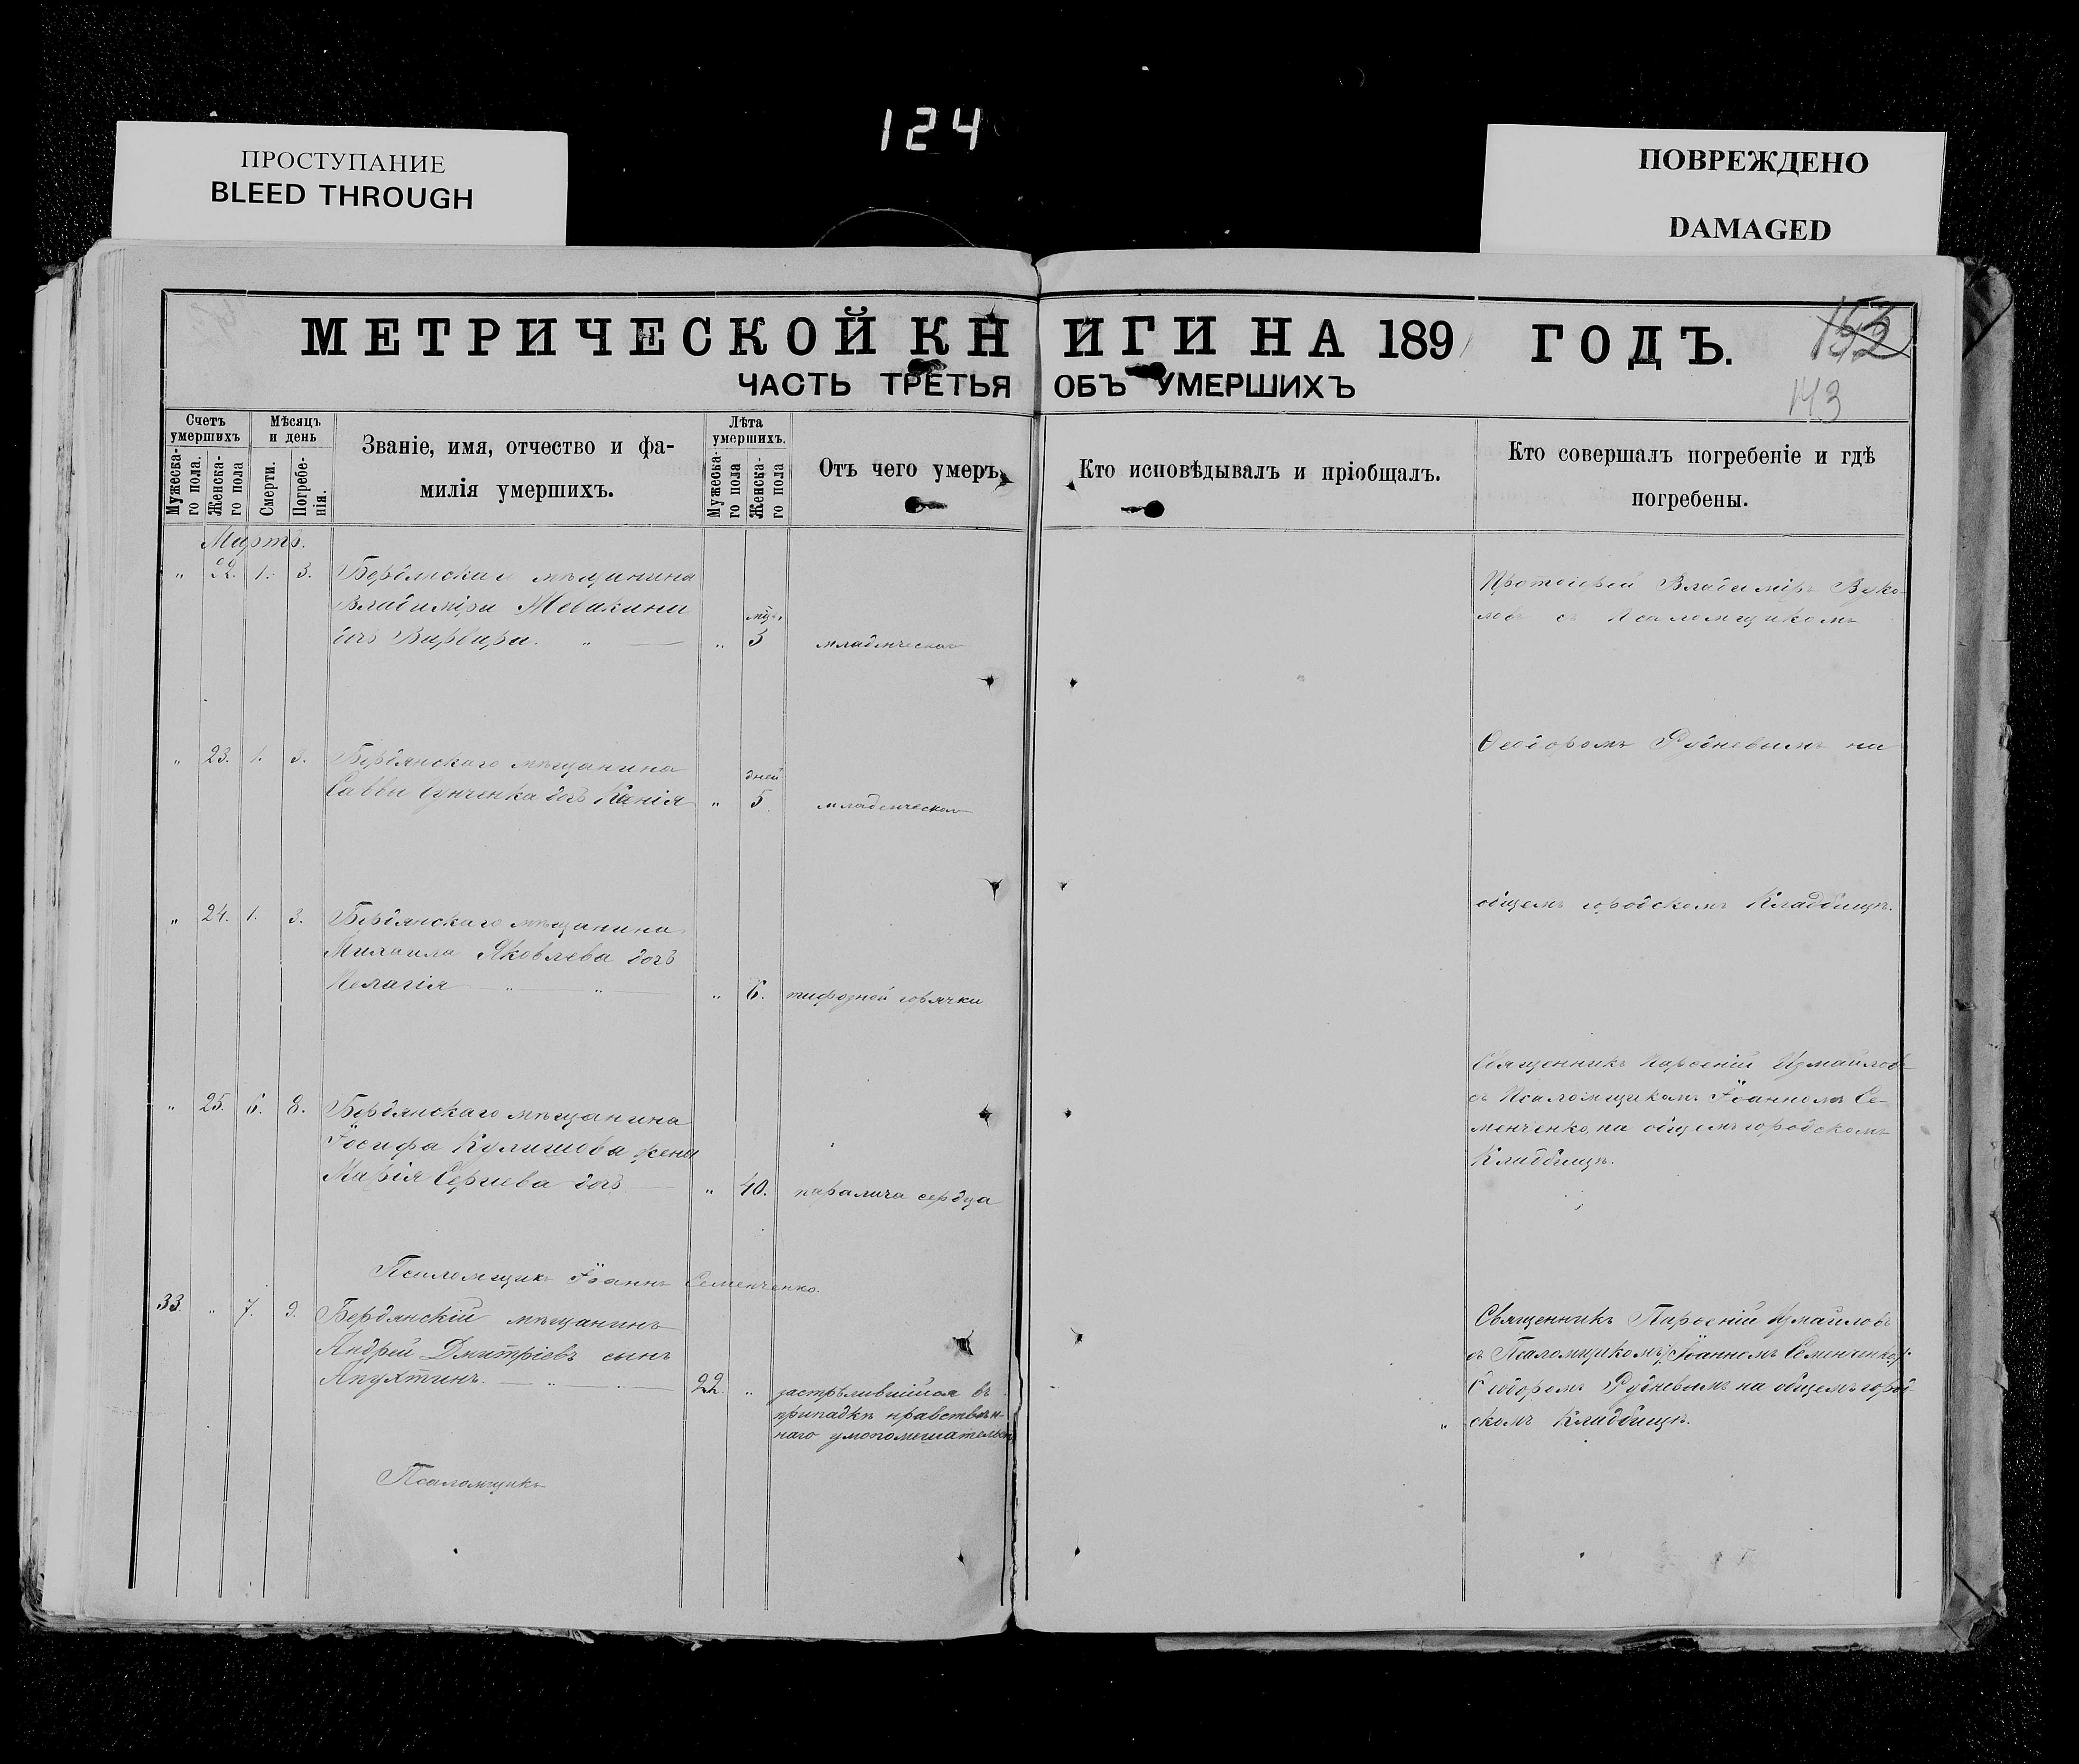 124
ПРОСТУПАНИЕ
BLEED THROUGH
ПОВРЕЖДЕНО
DAMAGED
МЕТРИЧЕСКОЙ КНИГИ НА 189 ГОДЪ.
153
143
ЧАСТЬ ТРЕТЬЯ ОБЪ УМЕРШИХЪ
Счетъ умершихъ
Мужеска-го пола.
Женска-го пола
Мѣсяцъ и день
Смерти.
Погребе-нія.
Званіе, имя, отчество и фа-
милія умершихъ.
Лѣта умершихъ.
Мужеска-го пола
Женска-го пола
Отъ чего умеръ
Кто исповѣдывалъ и пріобщалъ.
Кто совершалъ погребеніе и гдѣ
погребены.
Мартъ.
" 22. 1. 3. Бердянскаго мѣщанина
Владиміра
дочь Варвара. " " 3 младенческой
Протоіерей Владиміръ Вуко-
ловъ съ Псаломщикомъ
" 23. 1. 3. Бердянскаго мѣщанина
дней
Саввы дочь " 5. младенческой
Ѳеодоромъ Рудневымъ на
" 24. 1. 3. Бердянскаго мѣщанина
Михаила Яковлева дочь
Пелагія " " " 6. тифозной горячки
общемъ городскомъ Кладбищѣ.
" 25. 6. 8. Бердянскаго мѣщанина
Іосифа Кулишова жена
Марія Сергиева дочь " 40. паралича сердца
Священникъ Парѳеній Измаиловъ
съ Псаломщикомъ Іоанномъ Се-
менченко, на общемъ городскомъ
Кладбищѣ.
Псаломщикъ Іоаннъ Семенченко.
33. " 7. 9. Бердянскій мѣщанинъ
Андрей Дмитріевъ сынъ
Апухтинъ. " 22 " застрѣлившійся въ
припадкѣ нравствен-
наго умопомѣшательст
Священникъ Парѳеній Измаиловъ
съ Псаломщикомъ Іоанномъ Семенченко
Ѳеодоромъ Рудневымъ на общемъ город-
скомъ Кладбищѣ.
Псаломщикъ